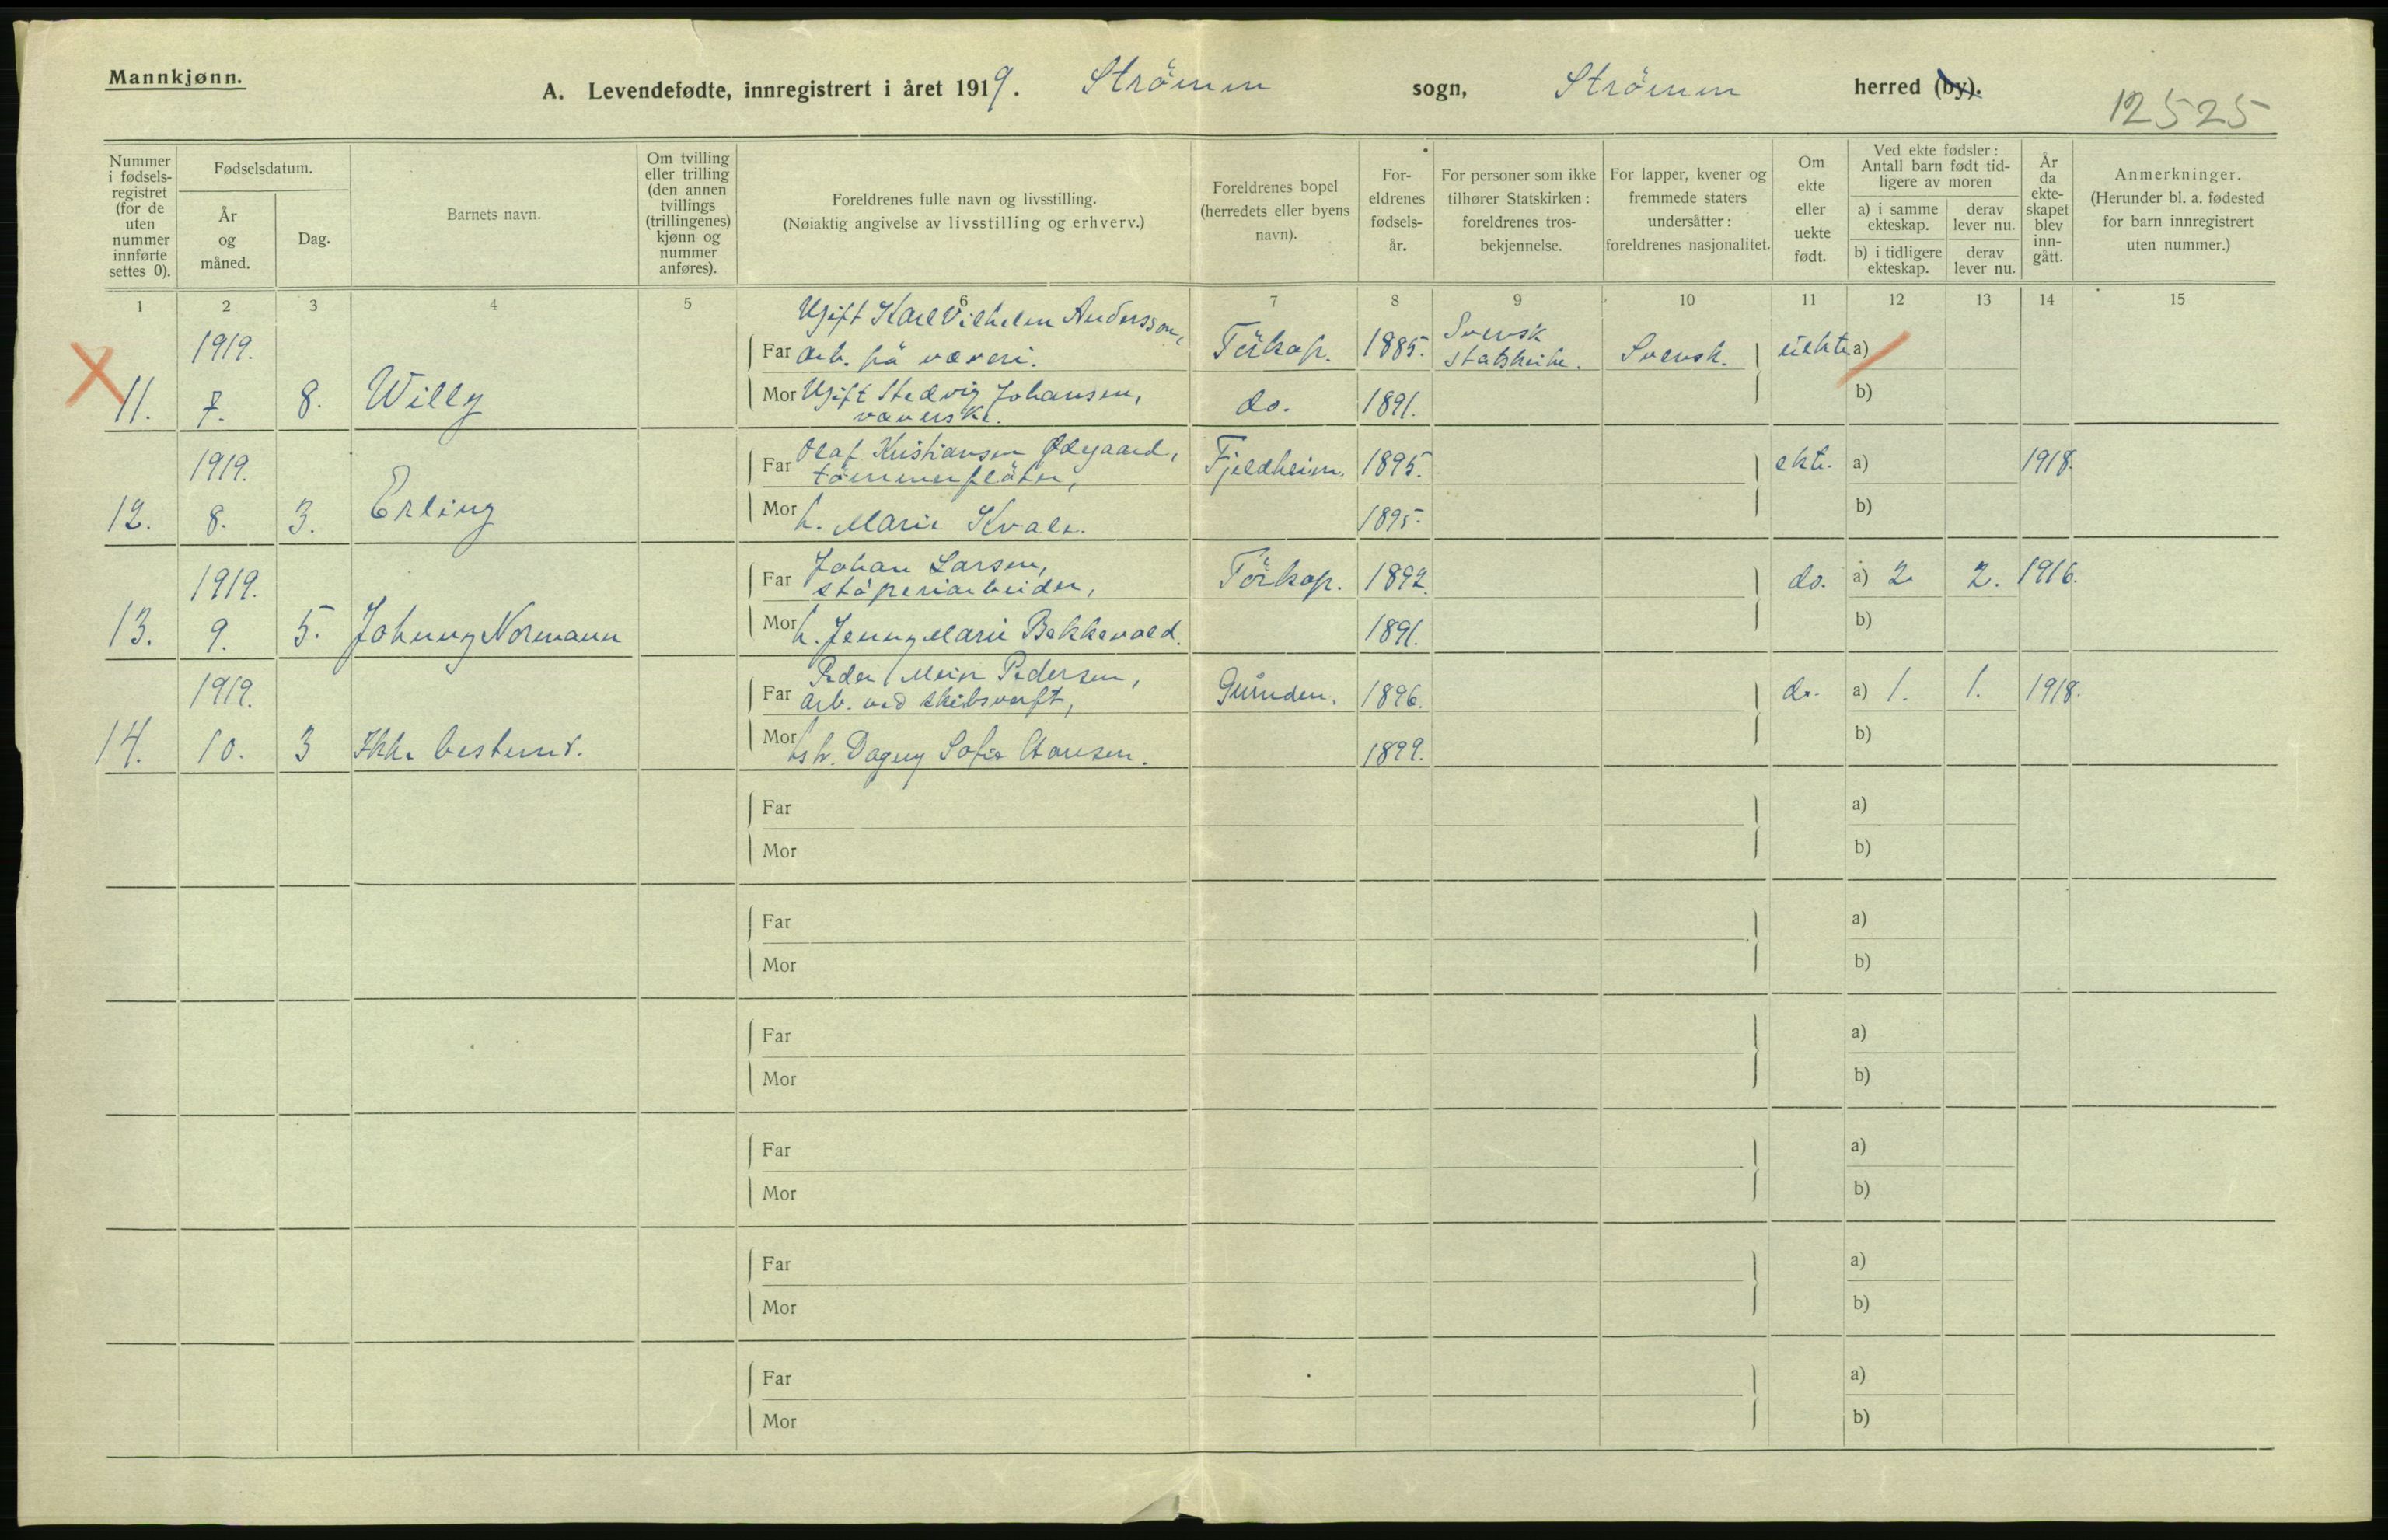 Mannkjønn.
A. Levendefødte, innregistrert i året 1919. Strømm sogn, Strømm herred (by).
12525
Nummer i fødsels-registret (for de uten nummer innførte settes 0).
Fødselsdatum.
År og måned.
Dag.
Barnets navn.
Om tvilling eller trilling (den annen tvillings (trillingenes) kjønn og nummer anføres).
Foreldrenes fulle navn og livsstilling.
(Nøiaktig angivelse av livsstilling og erhverv.)
Foreldrenes bopel (herredets eller byens navn).
For-eldrenes fødsels-år.
For personer som ikke tilhører Statskirken: foreldrenes tros-bekjennelse.
For lapper, kvener og fremmede staters undersåtter: foreldrenes nasjonalitet.
Om ekte eller uekte født.
Ved ekte fødsler: Antall barn født tid-ligere av moren
a) i samme ekteskap.
derav lever nu.
b) i tidligere ekteskap.
derav lever nu.
År da ekte-skapet blev inn-gått.
Anmerkninger.
(Herunder bl. a. fødested for barn innregistrert uten nummer.)
1 2 3 4 5 6 7 8 9 10 11 12 13 14 15
Ugift Karl Vilhelm Andersson,
1919. Far arb. på væveri. Törkop. 1885. Svensk statskirke. Svensk. uekte a)
11. 7. 8. Willy Mor Ugift Hedvig Johansen, do. 1891. b)
væverske.
1919. Far Olaf Kristiansen Ødegaard, Fjeldheim. 1895. ekte. a) 1918.
tömmerfløter,
12. 8. 3. Erling Mor h. Marie Kvale. 1895. b)
1919. Far Johan Larsen, Törkop. 1892. do. a) 2 2. 1916.
støperiarbeider,
13. 9. 5. Johnny Normann Mor h. Jenny Marie Bakkevold. 1891. b)
Peder Meier Pedersen,
1919. Far arb. ved skibsverft, 1896. do. a) 1. 1. 1918.
14. 10. 3 Ikke bestemt. Mor Dagny Sofie Hansen. 1899. b)
Far a)
Mor b)
Far a)
Mor b)
Far a)
Mor b)
Far a)
Mor b)
Far a)
Mor b)
Far a)
Mor b)